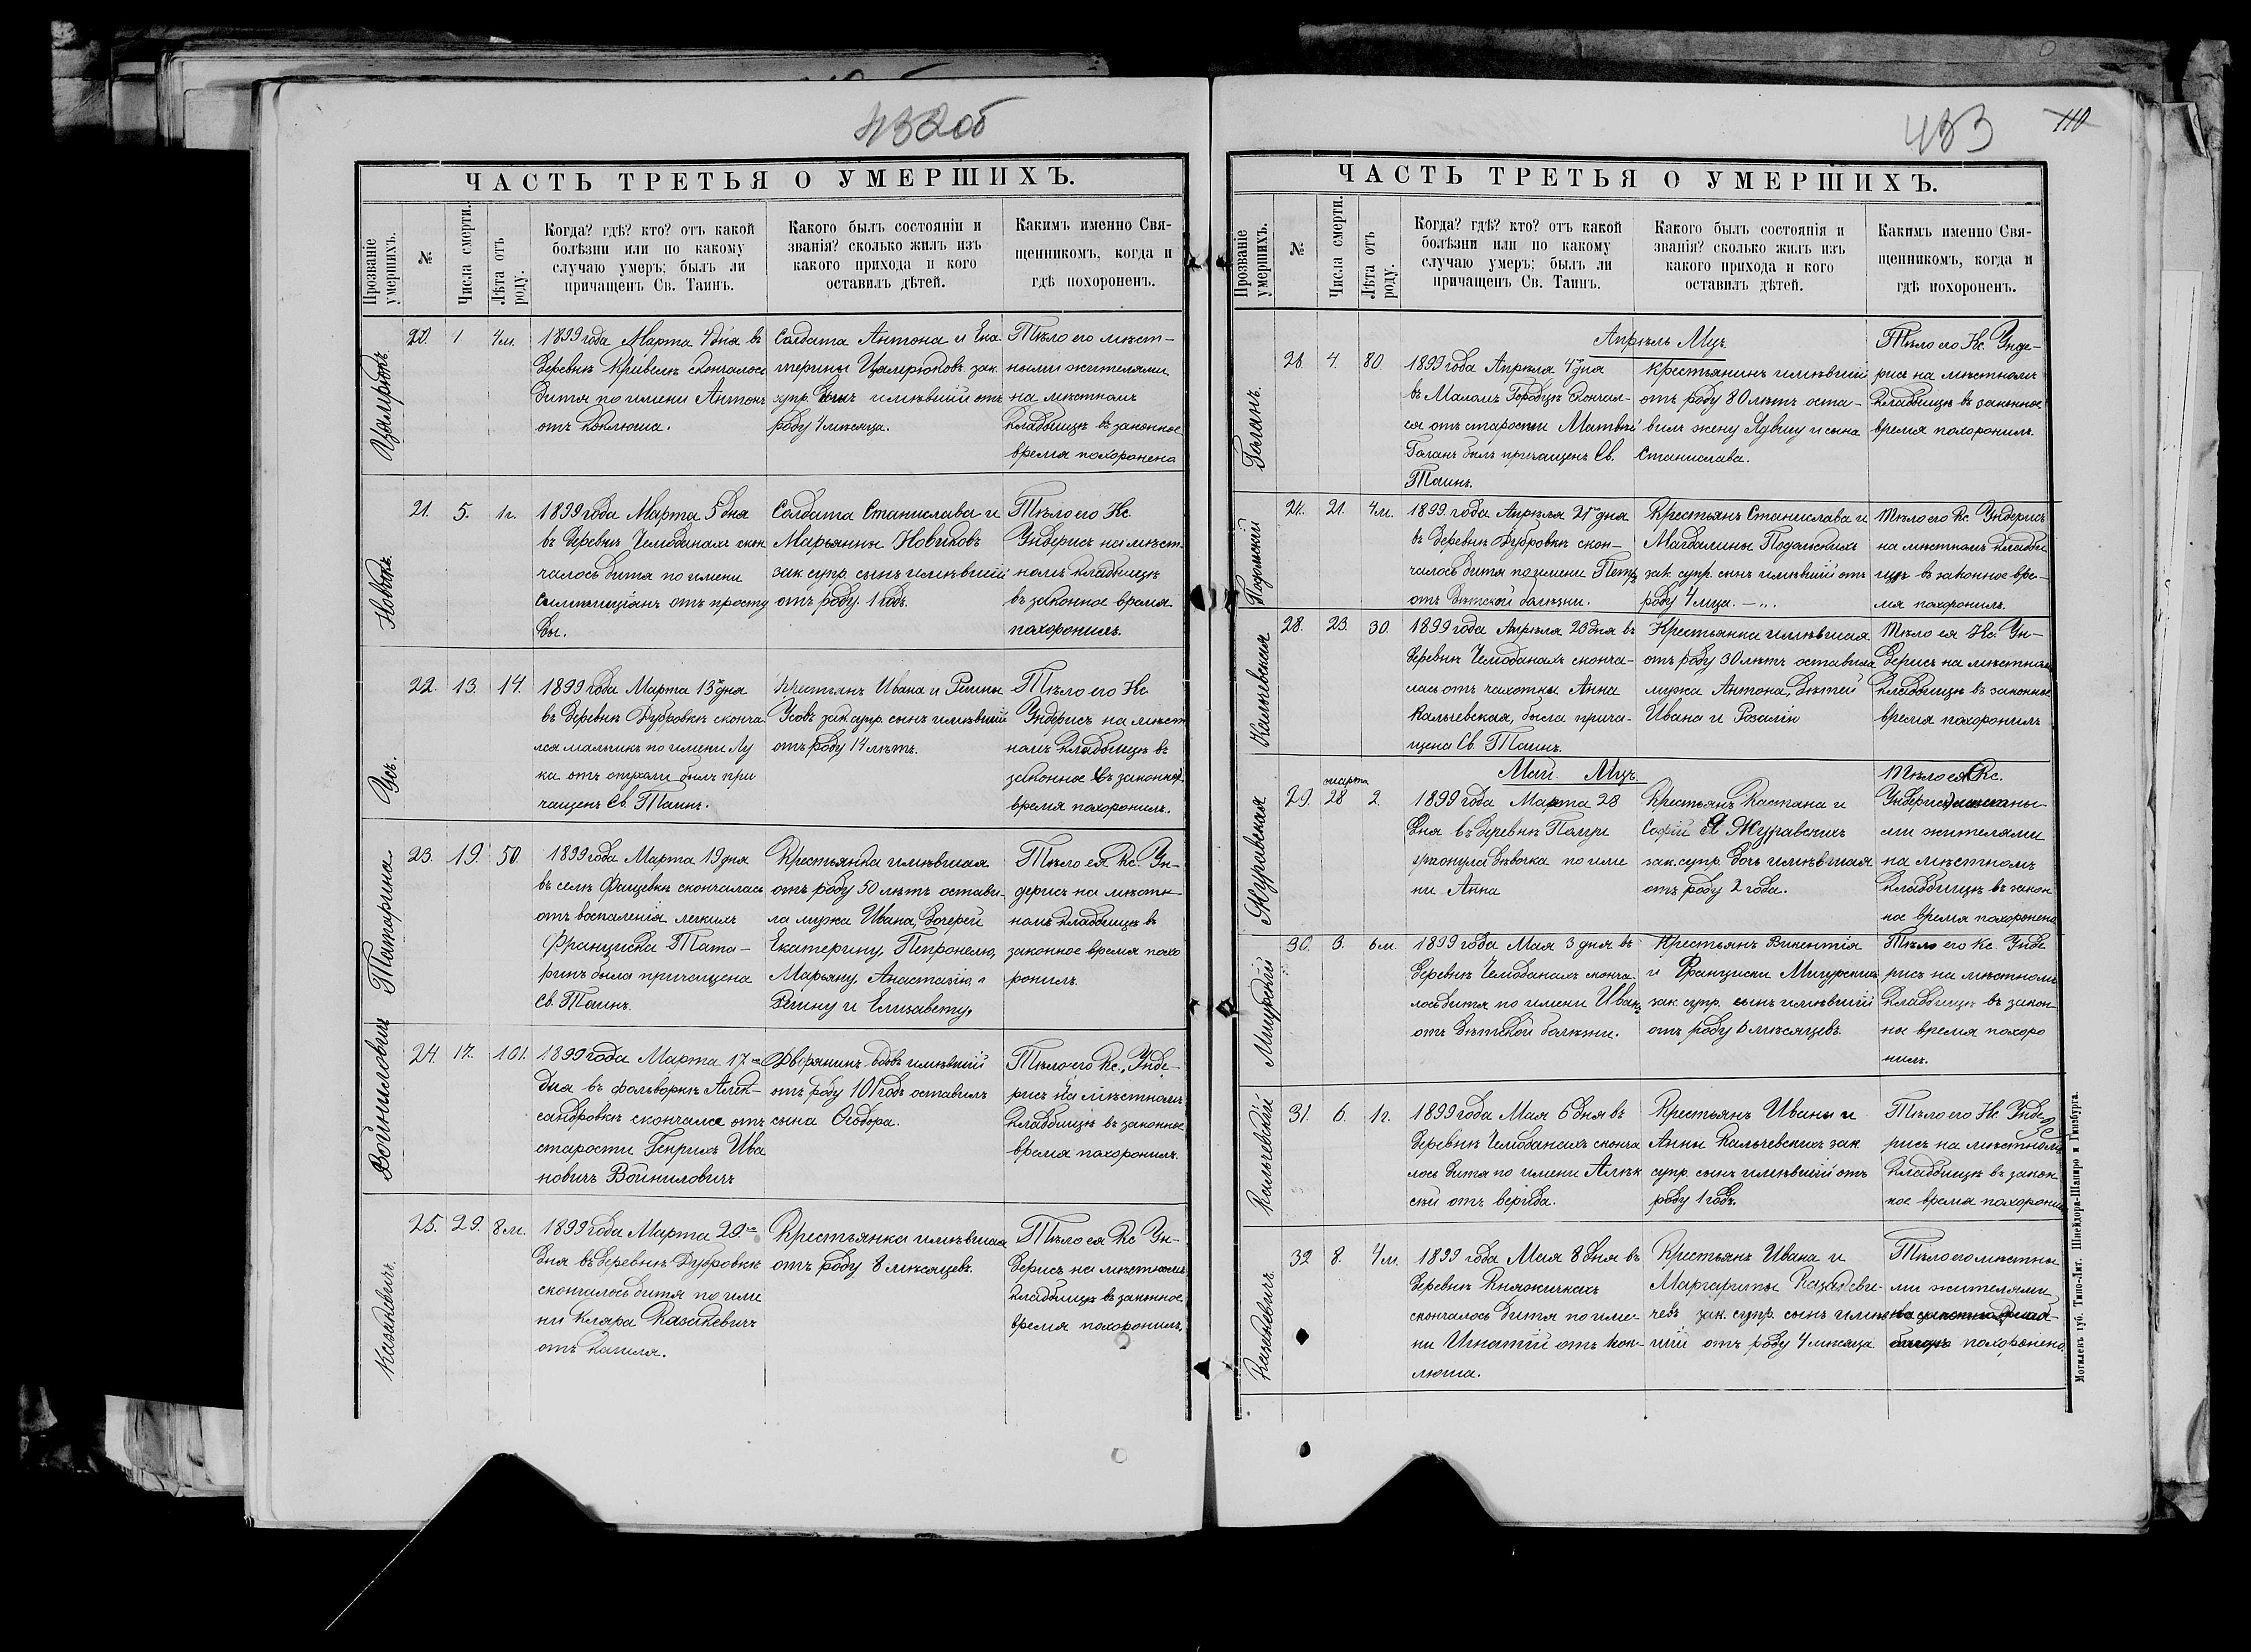 432об
ЧАСТЬ ТРЕТЬЯ О УМЕРШИХЪ.
Прозваніе умершихъ.
№
Числа смерти.
Лѣта отъ роду.
Когда? гдѣ? кто? отъ какой
болѣзни или по какому
случаю умеръ; былъ ли
причащенъ Св. Таинъ.
Какого былъ состояніи и
званія? сколько жилъ изъ
какого прихода и кого
оставилъ дѣтей.
Какимъ именно Свя-
щенникомъ, когда и
гдѣ похороненъ.
20. 1 4м.
1899 года Марта 4 дня въ
деревнѣ Кривелѣ скончалось
дитя по имени Антонъ
отъ коклюша.
Солдата Антона и Ека
терины Цялерюковъ зак.
супр. сынъ имѣвшій отъ
роду 4 мѣсяца.
Тѣло его мѣст-
ными жителями
на мѣстномъ
кладбищѣ въ законное
время похоронено
Новикъ.
21. 5. 1г.
1899 года Марта 5 дня
въ деревнѣ Чемоданахъ скон
чалось дитя по имени
отъ просту
ды.
Солдата Станислава и
Марьянны Новиковъ
зак. супр. сынъ имѣвшій
отъ роду 1 годъ.
Тѣло его Кс.
Ундерисъ на мѣст-
номъ кладбищѣ
въ законное время
похоронилъ.
Усъ.
22. 13. 14.
1899 года Марта 13го дня
въ деревнѣ Дубровкѣ сконча
лся мальчикъ по имени Лу
ка отъ опухоли былъ при
чащенъ Св. Таинъ.
Крестьянъ Ивана и Регины
Усовъ зак. супр. сынъ имѣвшій
отъ роду 14 лѣтъ.
Тѣло его Кс.
Ундерисъ на мѣст
номъ кладбищѣ въ
законное въ законное
время похоронилъ.
Татарина
23. 19. 50
1899 года Марта 19 дня
въ селѣ Фащевкѣ скончалась
отъ воспаленія легкихъ
Франциска Тата-
ринъ была причащена
Св. Таинъ.
Крестьянка имѣвшая
отъ роду 50 лѣтъ остави-
ла мужа Ивана, дочерей
Екатерину, Петронелю,
Марьяну, Анастазію,
Регину и Елизавету.
Тѣло ея Кс. Ун-
дерисъ на мѣстн-
номъ кладбищѣ въ
законное время похо
ронилъ.
Войниловичъ
24 17. 101.
1899 года Марта 17го
дня въ фольваркѣ Алек-
сандровкѣ скончался отъ
старости Генрихъ Ива
новичъ Войниловичъ
Дворянинъ вдовъ имѣвшій
отъ роду 101 годъ оставилъ
сына Ѳеодора.
Тѣло его Кс. Унде-
рисъ на мѣстномъ
кладбищѣ въ законное
время похоронилъ.
Казакевичъ.
25. 29. 8м.
1899 года Марта 29го
дня въ деревнѣ Дубровкѣ
скончалось дитя по име
ни Кляра Казакевичъ
отъ кашля.
Крестьянка имѣвшая
отъ роду 8 мѣсяцевъ.
Тѣло ея Кс Ун-
дерисъ на мѣстномъ
кладбищѣ въ законное
время похоронилъ.
433
110
ЧАСТЬ ТРЕТЬЯ О УМЕРШИХЪ.
Прозваніе умершихъ.
№
Числа смерти.
Лѣта отъ роду.
Когда? гдѣ? кто? отъ какой
болѣзни или по какому
случаю умеръ; былъ ли
причащенъ Св. Таинъ.
Какого былъ состоянія и
званія? сколько жилъ изъ
какого прихода и кого
оставилъ дѣтей.
Какимъ именно Свя-
щенникомъ, когда и
гдѣ похороненъ.
Апрѣль Мцъ.
Галанъ.
26. 4. 80
1899 года Апрѣля 4го дня
въ Маломъ Городцѣ скончал-
ся отъ старости Матвѣй
Галанъ былъ причащенъ Св.
Таинъ.
Крестьянинъ имѣвшій
отъ роду 80 лѣтъ оста-
вилъ жену Ядвигу и сына
Станислава.
Тѣло его Кс. Унде-
рисъ на мѣстномъ
кладбищѣ въ законное
время похоронилъ.
Подольскій
27. 21. 4м.
1899 года Апрѣля 21го дня
въ деревнѣ Дубровкѣ скон-
чалось дитя по имени Петръ
отъ дѣтской болѣзни.
Крестьянъ Станислава и
Магдалины Подольскихъ
зак. супр. сынъ имѣвшій отъ
роду 4 мца.
Тѣло его Кс. Ундерисъ
на мѣстномъ кладби
щѣ въ законное вре-
мя похоронилъ.
Кальчевская
28. 23. 30.
1899 года Апрѣля 23 дня въ
деревнѣ Чемоданахъ сконча-
лась отъ чахотки Анна
Кальчевская, была прича-
щена Св. Таинъ.
Крестьянка имѣвшая
отъ роду 30 лѣтъ оставила
мужа Антона, дѣтей
Ивана и Розалію
Тѣло ея Кс. Ун-
дерисъ на мѣстномъ
кладбищѣ въ законное
время похоронилъ
Май Мцъ.
Журавская
29. марта 28 2.
1899 года Марта 28
дня въ деревнѣ
дѣвочка по име
ни Анна
Крестьянъ Кастана и
Софіи Журавскихъ
зак. супр. дочь имѣвшая
отъ роду 2 года.
Тѣло ея Кс.
Ундерисъ
ми жителями
на мѣстномъ
кладбищѣ въ закон
ное время похоронено
Мигурскій
30. 3. 6м.
1899 года Мая 3 дня въ
деревнѣ Чемоданахъ сконча-
лось дитя по имени Иванъ
отъ дѣтской болѣзни.
Крестьянъ Викентія
и Франциски Мигурскихъ
зак. супр. сынъ имѣвшій
отъ роду 6 мѣсяцевъ.
Тѣло его Кс. Унде
рисъ на мѣстномъ
кладбищѣ въ закон-
не время похоро
нилъ.
Кальчевскій
31. 6. 1г.
1899 года Мая 6 дня въ
деревнѣ Чемоданахъ сконча
лось дитя по имени Алек
сѣй отъ вериода.
Крестьянъ Ивана и
Анны Кальчевскихъ зак.
супр. сынъ имѣвшій отъ
роду 1 годъ.
Тѣло его Кс. Унде
рисъ на мѣстномъ
кладбищѣ въ закон
ное время похоронилъ
Казакевичъ
32 8. 4м.
1899 года Мая 8 дня въ
деревнѣ Княжичкахъ
скончалось дитя по име-
ни Игнатій отъ кок-
люша.
Крестьянъ Ивана и
Маргариты Казакеви-
чевъ зак. супр. сынъ имѣв
шій отъ роду 4 мѣсяца
Тѣло его мѣстны
ми жителями
похоронено.
Могилевъ губ. Типо-Лит. Шнейдора-Шапиро и Гинзбурга.